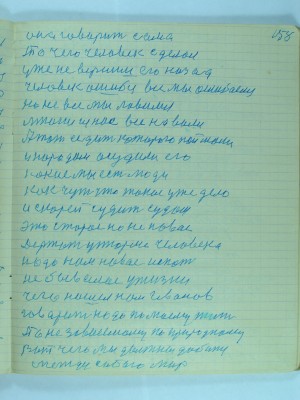 158
она говорит сама
То чего человек сделал
уже не вернеш его назад
человек ошибу все мы ошибаемы
но не все мы ловимы
многи и нас все на воли
А тот седит которого поймали
и народом осудили его
Какие мы ест люди
Как чут что такое уже дело
и скорей судит судом
Это старое но не новае
Держат у тюрме человека
надо нам новае искат
не бывалае у жизни
чего нашел нам Иванов
говорит надо по моему жит
По независемому по природному
Вот чего мы должны добыт
между собою мир